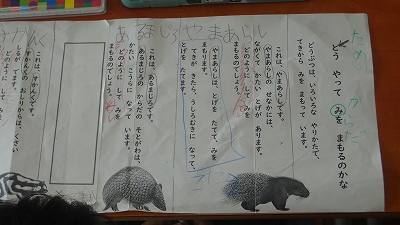 どう やって みを まもるのかな
どうぶつは、いろいろな やりかたで、
みを まもって います。
これは、やまあらしです。
やまあらしの せなかには、
ながくて かたい とげが あります。
どのように して みを
まもるのでしょう。
やまあらしは、とげを たてて、みを
まもります。
てきが きたら、うしろむきに なって、
とげを たてます。
これは、あるまじろです。
あるまじろの からだの そとがわは、
かたい こうらに なって います。
どのように して みを
まもるのでしょう。
これは、すかんくです。
すかんくの おしりからは、くさい
しるが でます。
やまあらし
あるまじろ